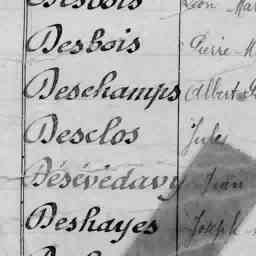 Desbois
Desbois Pierre M
Deschamps Albert
Desclos Jules
Désévédavy Jean
Deshayes Joseph